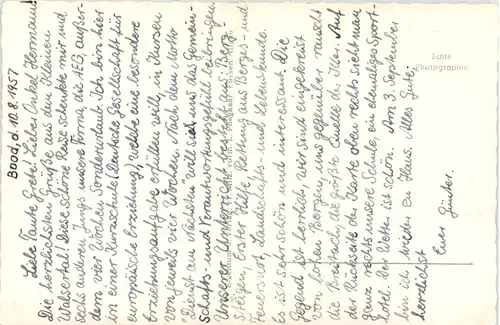 Baad, d. 10.8.1957
Liebe Tante Grete! Lieber Onkel Hermann!
Die herzlichsten Grüße aus dem Kleinen
Walsertal! Diese schöne Reise schenkte mir und
sechs anderen Jungs unsere Firma, die AEG, außer-
dem vier Wochen Sonderurlaub. Ich bin hier
in einer Kurzschule (Deutsche Gesellschaft für
europäische Erziehung), welche eine besondere
Erziehungsaufgabe erfüllen will, in Kursen
von jeweils vier Wochen. Nach dem Motto
"Dienst am Nächsten" will sie uns das Gemein-
schafts- und Verantwortungsgefühl beibringen.
Unserer Unterricht besteht aus: Berg-
steigen, Erster Hilfe, Rettung aus Berges- und
Feuersnot, Landschafts- und Lebenskunde.
Es ist sehr schön und interessant. Die
Gegend ist herrlich, wir sind eingekreist
von hohen Bergen, uns gegenüber rauscht
die Breitach, die größte Quelle der Iller. Auf
der Rückseite der Karte oben rechts sieht man
ganz rechts unsere Schule, ein ehemaliges Sport-
hotel. Das Wetter ist schön. Am 3. September
bin ich wieder zu Haus. Alles Gute.
herzlichst
Euer Günter.
Echte
Photographie